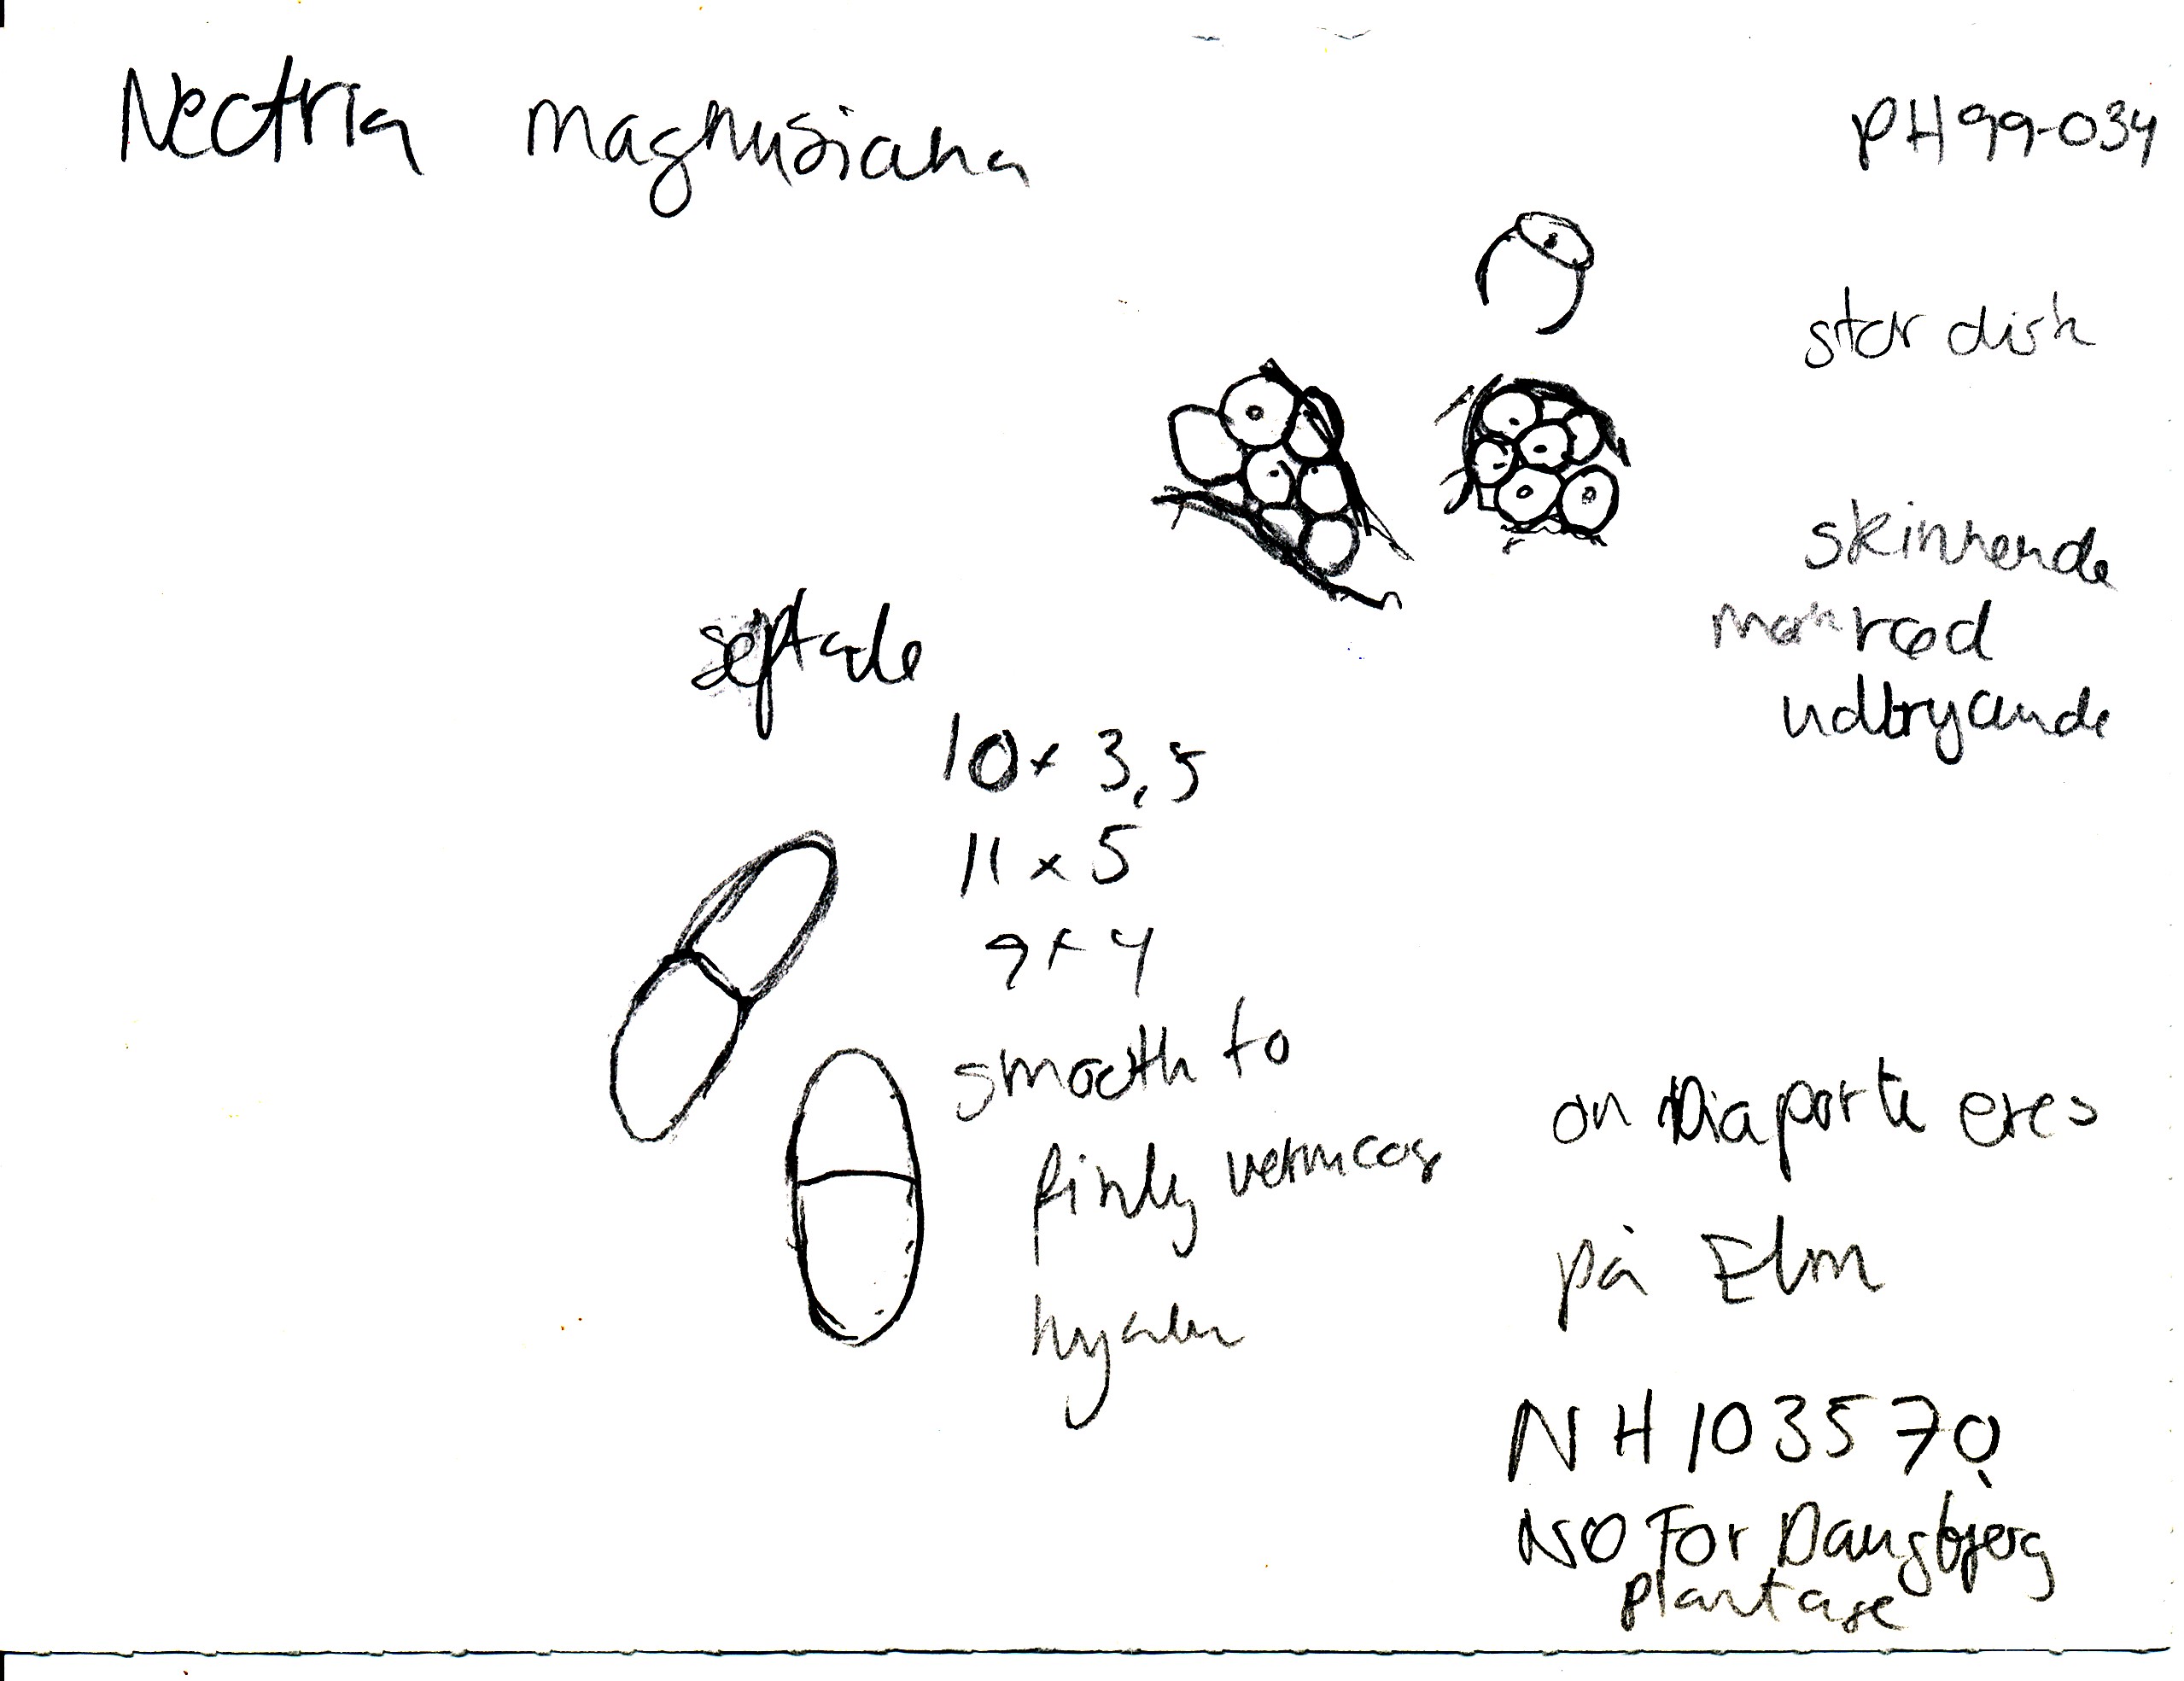 Nectria magnusiana
PH99-034
stor disk
skinnende
mørkrød
udbrydende
septate
10 x 3,5
11 x 5
9 x 4
smooth to
finly verrucos
hyalin
on Diaporte eres
på Elm
NH 103570
NØ For Daugbjerg
plantage